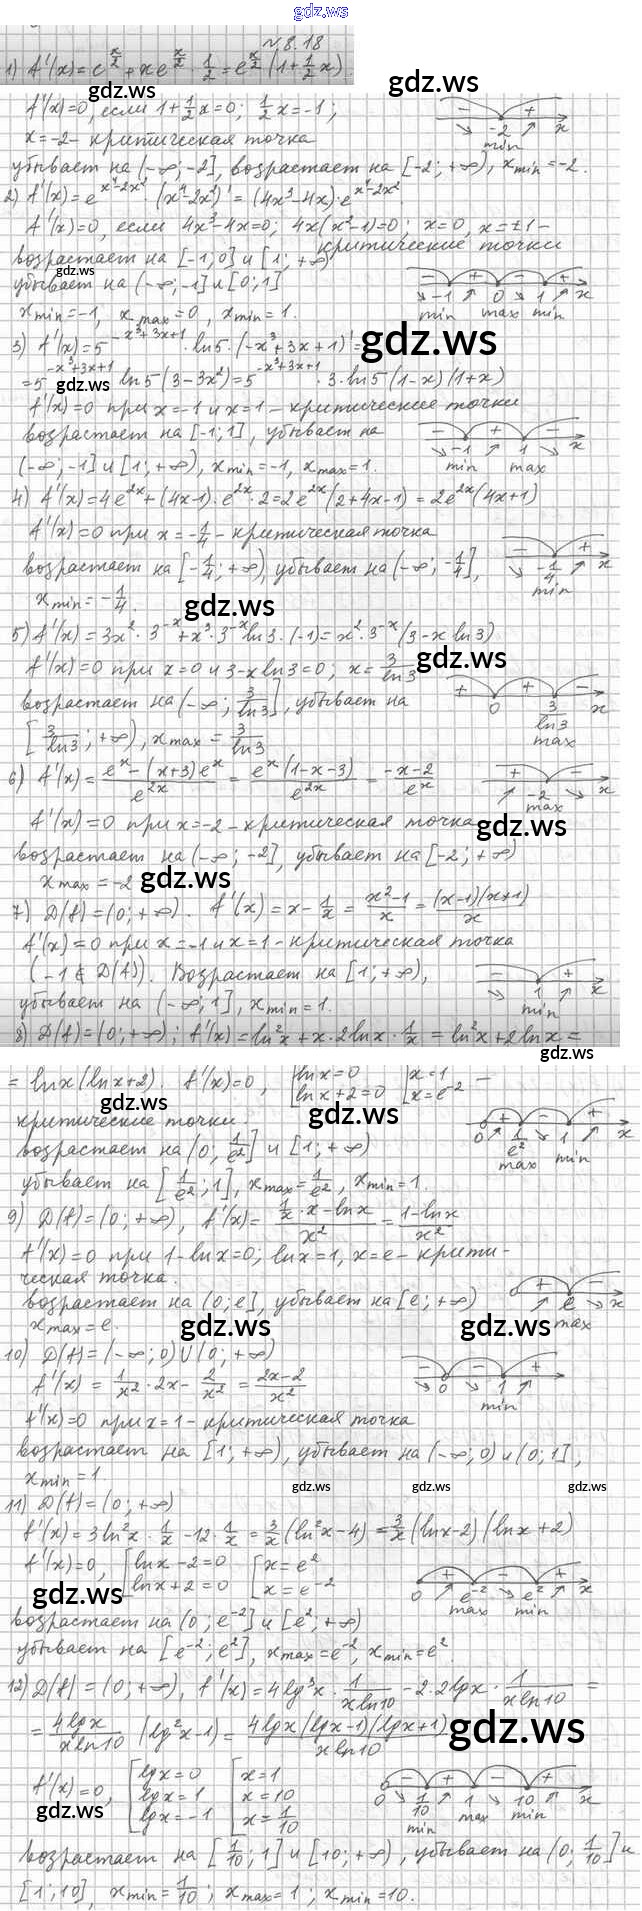 gdz.ws
№8.18
1) f'(x)=e^{x/2}+xe^{x/2}·1/2=e^{x/2}(1+1/2 x).
gdz.ws
gdz.ws
f'(x)=0, если 1+1/2 x=0; 1/2 x=-1;
x=-2- критическая точка
- + -2 min x
убывает на (-∞;-2], возрастает на [-2;+∞), x min=-2.
2) f'(x)=e^{x⁴-2x²}·(x⁴-2x²)'=(4x³-4x)·e^{x⁴-2x²}
f'(x)=0, если 4x³-4x=0; 4x(x²-1)=0; x=0, x=±1-
критические точки
возрастает на [-1;0] и [1;+∞)
gdz.ws
убывает на (-∞;-1] и [0;1]
- + - + -1 0 1 x
min max min
x min=-1, x max=0, x min=1.
3) f'(x)=5^{-x³+3x+1}·ln5·(-x³+3x+1)'=
gdz.ws
=5^{-x³+3x+1} ln5(3-3x²)=5^{-x³+3x+1}·3·ln5(1-x)(1+x)
gdz.ws
f'(x)=0 при x=-1 и x=1- критические точки
возрастает на [-1;1], убывает на
- + - -1 1 x
min max
(-∞;-1] и [1;+∞), x min=-1, x max=1.
4) f'(x)=4e^{2x}+(4x-1)·e^{2x}·2=2e^{2x}(2+4x-1)=2e^{2x}(4x+1)
f'(x)=0 при x=-1/4- критическая точка
возрастает на [-1/4;+∞), убывает на (-∞;-1/4],
- + -1/4 min x
x min=-1/4.
gdz.ws
5) f'(x)=3x²·3^{-x}+x³·3^{-x}ln3·(-1)=x²·3^{-x}(3-x ln3)
f'(x)=0 при x=0 и 3-x ln3=0; x=3/ln3
gdz.ws
+ + - 0 3/ln3 max x
возрастает на (-∞;3/ln3], убывает на
[3/ln3;+∞), x max=3/ln3
6) f'(x)=(e^x-(x+3)e^x)/e^{2x}=(e^x(1-x-3))/e^{2x}=(-x-2)/e^x
+ - -2 max x
f'(x)=0 при x=-2- критическая точка
gdz.ws
возрастает на (-∞;-2], убывает на [-2;+∞)
x max=-2
gdz.ws
7) D(f)=(0;+∞). f'(x)=x-1/x=(x²-1)/x=((x-1)(x+1))/x
f'(x)=0 при x=-1 и x=1- критическая точка
(-1∉D(f)). Возрастает на [1;+∞),
- + 1 min x
убывает на (-∞;1], x min=1.
8) D(f)=(0;+∞); f'(x)=ln²x+x·2lnx·1/x=ln²x+2lnx=
gdz.ws
=lnx(lnx+2). f'(x)=0, [lnx=0 lnx+2=0 [x=1 x=e⁻² -
gdz.ws
gdz.ws
критические точки
+ - + 0 1/e² 1 x
max min
возрастает на (0;1/e²] и [1;+∞)
убывает на [1/e²;1], x max=1/e², x min=1.
9) D(f)=(0;+∞), f'(x)=(1/x·x-lnx)/x²=(1-lnx)/x²
f'(x)=0 при 1-lnx=0; lnx=1, x=e- крити-
ческая точка.
+ - e max x
возрастает на (0;e], убывает на [e;+∞)
x max=e.
gdz.ws
gdz.ws
10) D(f)=(-∞;0)∪(0;+∞)
f'(x)=1/x²·2x-2/x²=(2x-2)/x²
- - + 0 1 min x
f'(x)=0 при x=1- критическая точка
возрастает на [1;+∞), убывает на (-∞;0) и (0;1],
x min=1.
gdz.ws
gdz.ws
gdz.ws
11) D(f)=(0;+∞)
f'(x)=3ln²x·1/x-12·1/x=3/x(ln²x-4)=3/x(lnx-2)(lnx+2)
f'(x)=0, [lnx-2=0 lnx+2=0 [x=e² x=e⁻²
gdz.ws
+ - + 0 e⁻² e² x
max min
возрастает на (0;e⁻²] и [e²;+∞)
убывает на [e⁻²;e²], x max=e⁻², x min=e².
12) D(f)=(0;+∞), f'(x)=4lg³x·1/(xln10)-2·2lgx·1/(xln10)=
=4lgx/(xln10)(lg²x-1)=(4lgx(lgx-1)(lgx+1))/(xln10)
gdz.ws
f'(x)=0, [lgx=0 lgx=1 lgx=-1 [x=1 x=10 x=1/10
gdz.ws
- + - + 0 1/10 1 10 x
min max min
возрастает на [1/10;1] и [10;+∞), убывает на (0;1/10] и
[1;10], x min=1/10; x max=1; x min=10.